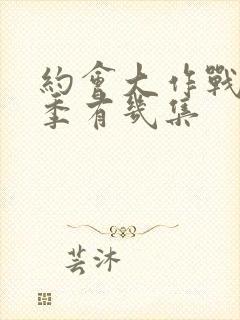 約會大作戰
季有幾集
芸沐